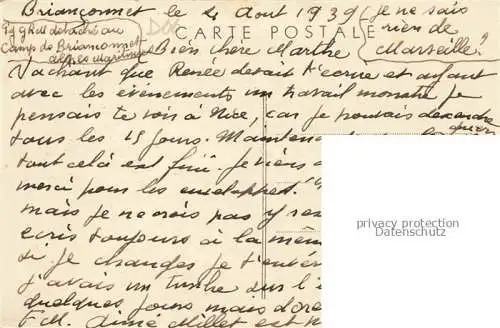 Briançonnet le 4 Aout 1939
je ne sais
rien de
Marseille?
détaché au
Camp de Briançonnet
Alpes Maritimes
CARTE POSTALE
Bien chère Marthe
Sachant que Renée devait t'ecrire et ayant
avec les évènements un travail monstre je
pensais te voir à Nice, car je pouvais descendre
tous les 15 jours. Mainten
tout celà est fini. Je viens
merci pour les enveloppes.
mais je ne vois pas y res
ecris toujours à la mêm
si je changes je t'entér
j'avais un timbre sur l'e
quelques jours mais
F.M. Aimé Millet est
privacy protection
CARTAMUNDI.ORG